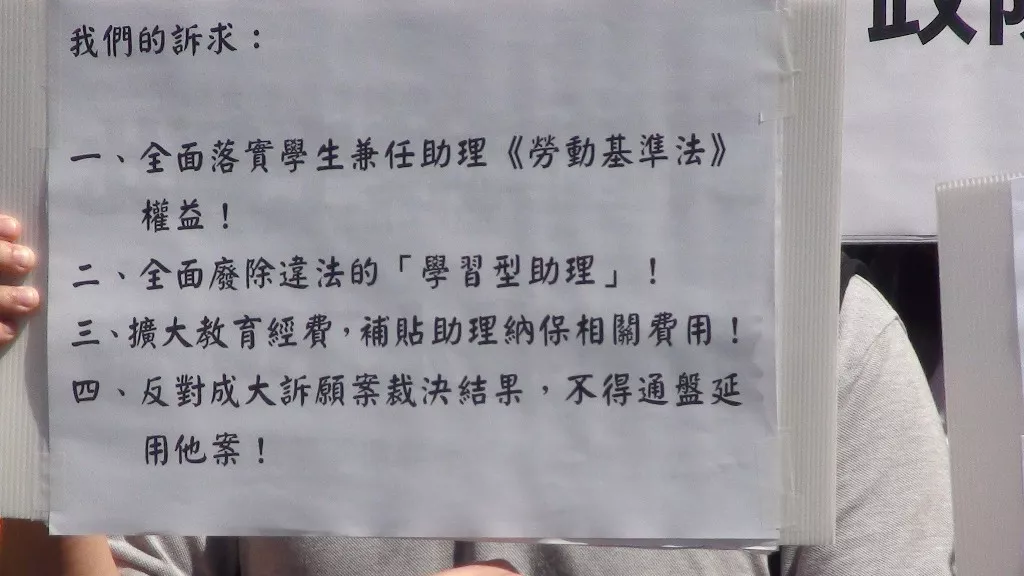 我們的訴求：
一、全面落實學生兼任助理《勞動基準法》
權益！
二、全面廢除違法的「學習型助理」！
三、擴大教育經費，補貼助理納保相關費用！
四、反對成大訴願案裁決結果，不得通盤延
用他案！
政院